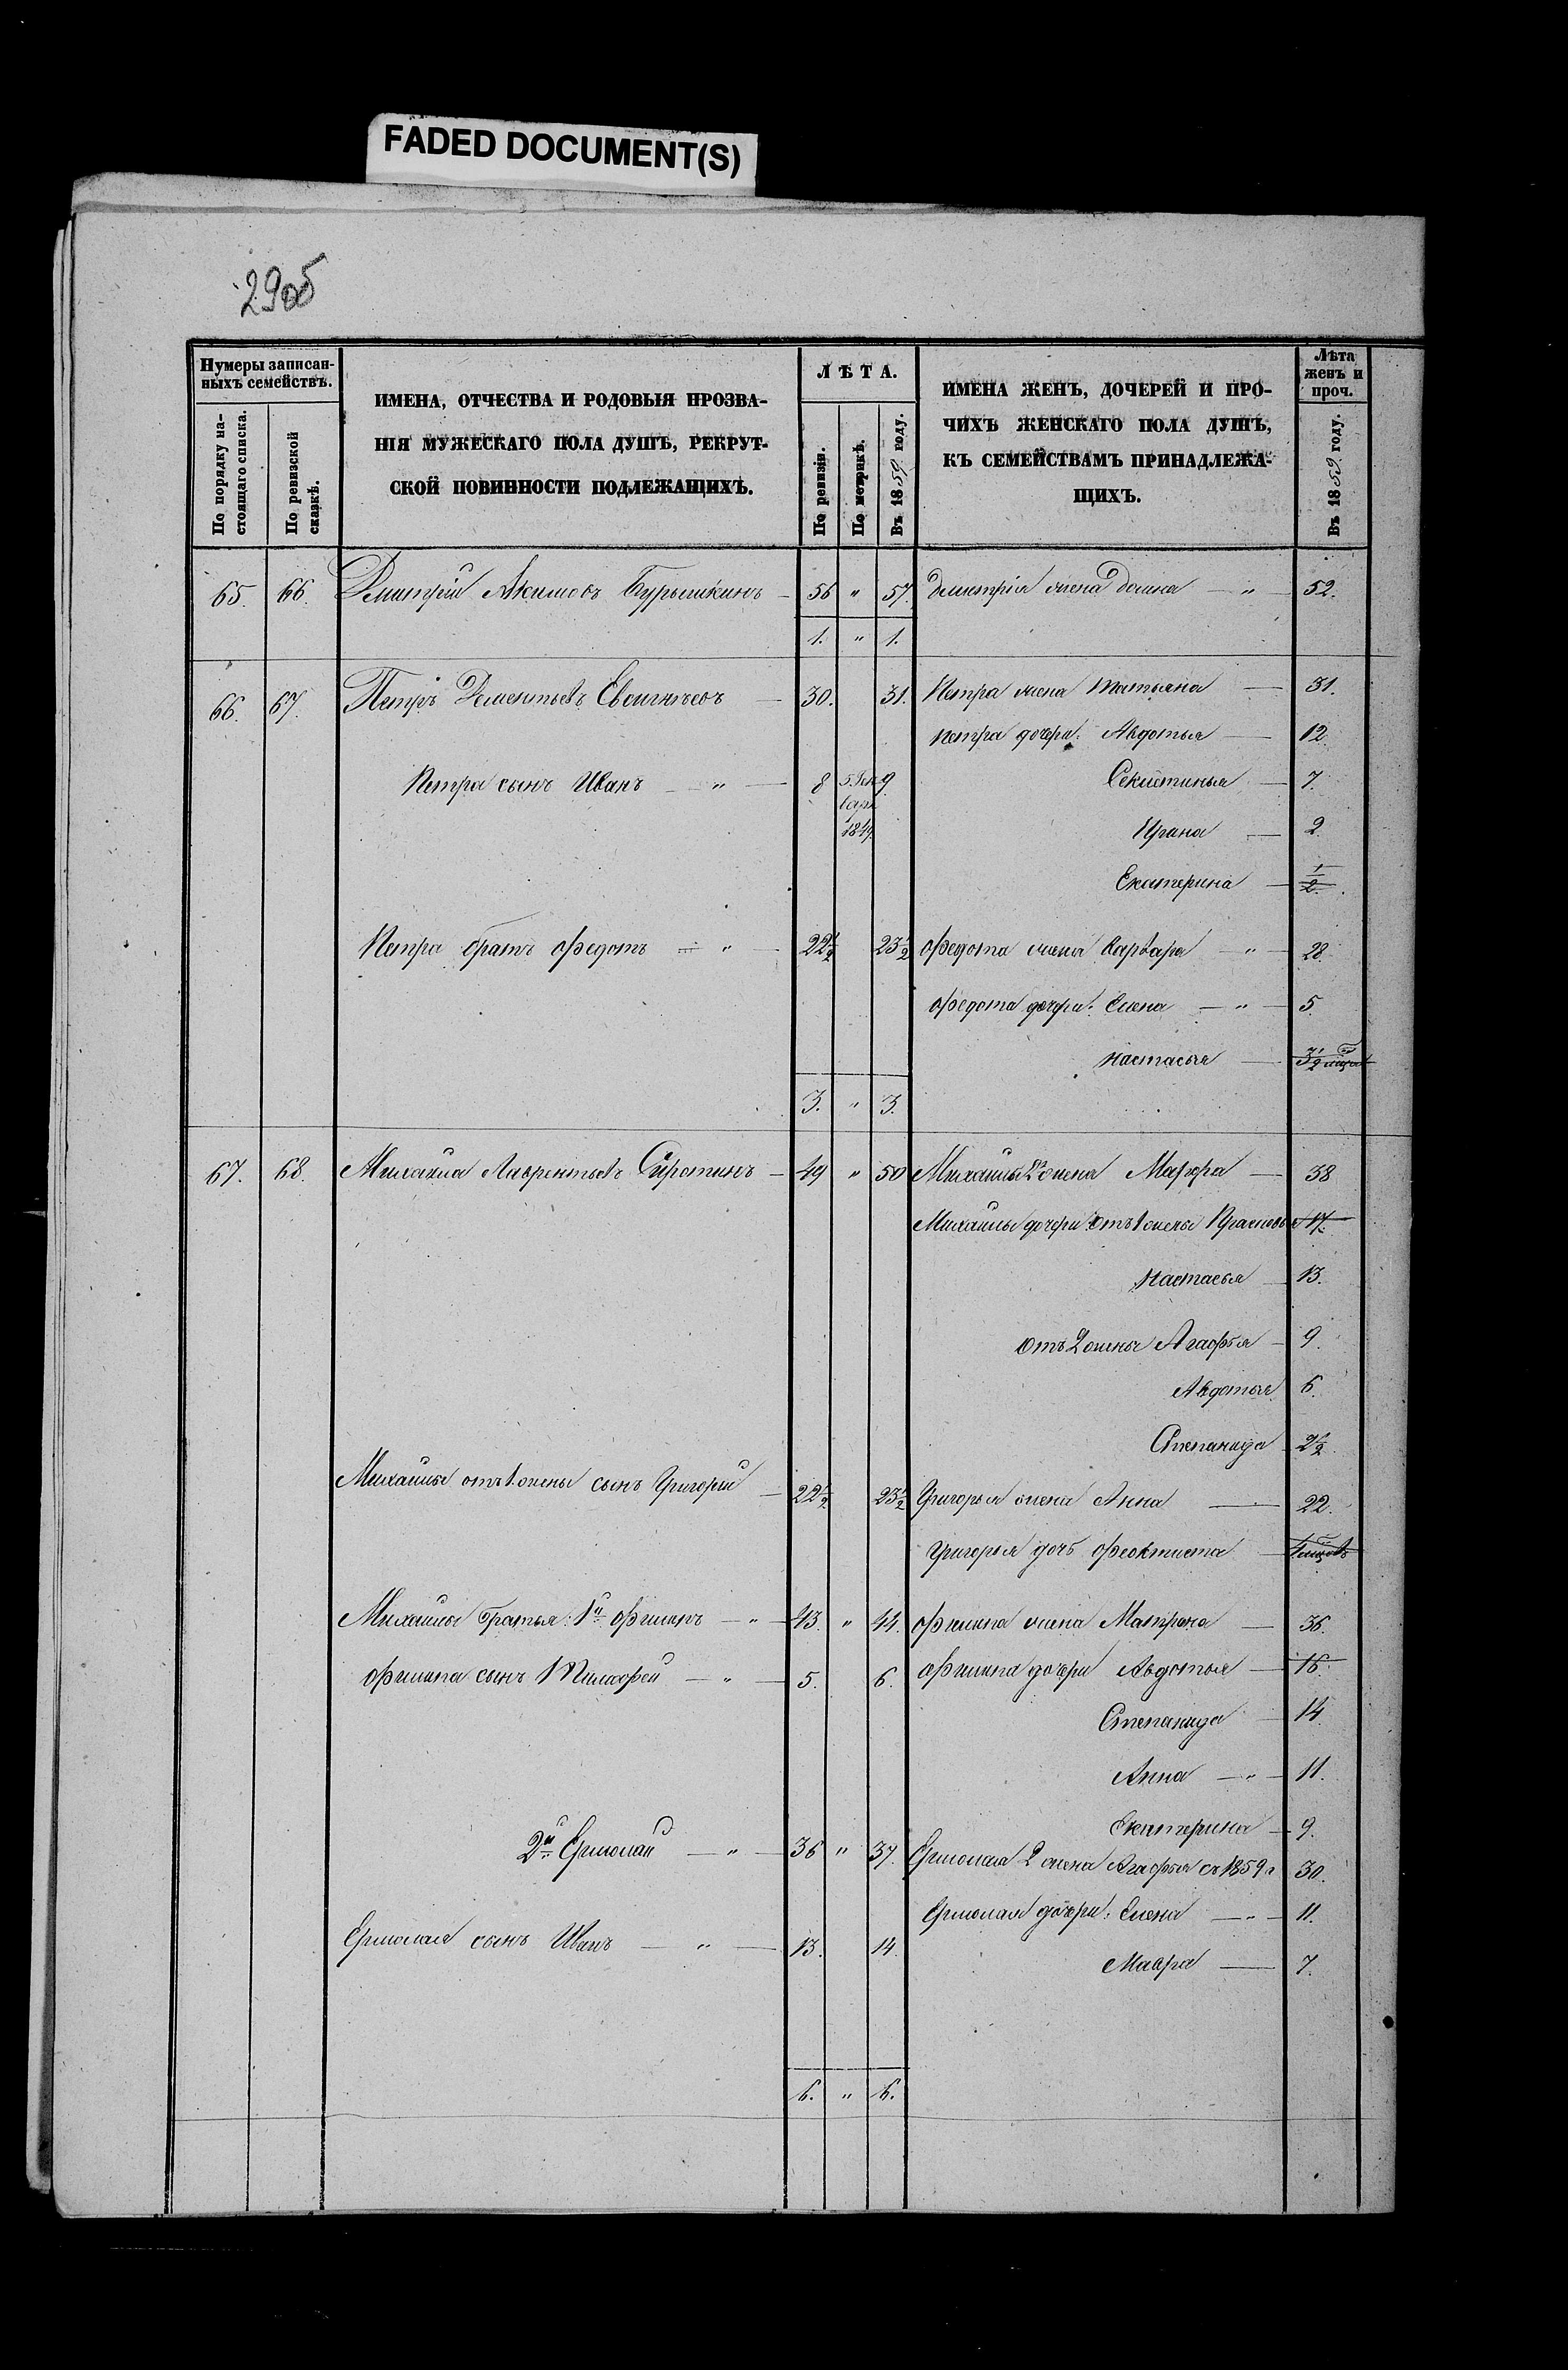 FADED DOCUMENT(S)
29об
Нумеры записан-
ныхъ семействъ.
По порядку на-
стоящаго списка.
По ревизской
сказкѣ.
ИМЕНА, ОТЧЕСТВА И РОДОВЫЯ ПРОЗВА-
НІЯ МУЖЕСКАГО ПОЛА ДУШЪ, РЕКРУТ-
СКОЙ ПОВИННОСТИ ПОДЛЕЖАЩИХЪ.
ЛѢТА.
По ревизіи.
По метрикѣ.
Въ 1859 году.
ИМЕНА ЖЕНЪ, ДОЧЕРЕЙ И ПРО-
ЧИХЪ ЖЕНСКАГО ПОЛА ДУШЪ,
КЪ СЕМЕЙСТВАМЪ ПРИНАДЛЕЖА-
ЩИХЪ.
Лѣта
женъ и
проч.
Въ 1859 году.
65. 66. Дмитрій Акимовъ Бурыкинъ — 56 " 57. Дмитрія жена Домна — " — 52.
1. " 1.
66. 67. Петръ Дементьевъ — 30. 31. Петра жена Татьяна — 31.
Петра дочери: Авдотья — 12.
Петра сынъ Иванъ — " — 8 9. 7.
1849. 2.
Екатерина — 1/2.
Петра братъ Федотъ — " — 22 1/2 23 1/2 Федота жена Варвара — " — 28.
Федота дочери: Елена — " — 5.
Настасья — 3 1/2
3. " 3.
67. 68. Михаила Лаврентьевъ Сиротинъ — 49 " 50 Михаилы 2 жена Марфа — 38
Михаилы дочери отъ 1 жены Прасковья 17.
Настасья — 13.
Отъ 2 жены Агафья — 9.
Авдотья 6.
Степанида 2 1/2.
Михаилы отъ 1. жены сынъ Григорій — 22 1/2 23 1/2 Григорья жена Анна — 22.
Григорья дочь Феоктиста —
Михаилы братья: 1й Филипъ — " — 43. " 44. Филипа жена Матрена — 36.
Филипа сынъ Тимофей — " — 5. 6. Филипа дочери Авдотья — 16.
Степанида — 14
Анна — " — 11.
Екатерина — 9.
2й Ермолай — " — 36 " 37. Ермолая 2 жена Агафья съ 1859 г 30.
Ермолая дочери: Елена — " — 11.
Ермолая сынъ Иванъ — " — 13. 14.
Мавра — 7.
6. " 6.